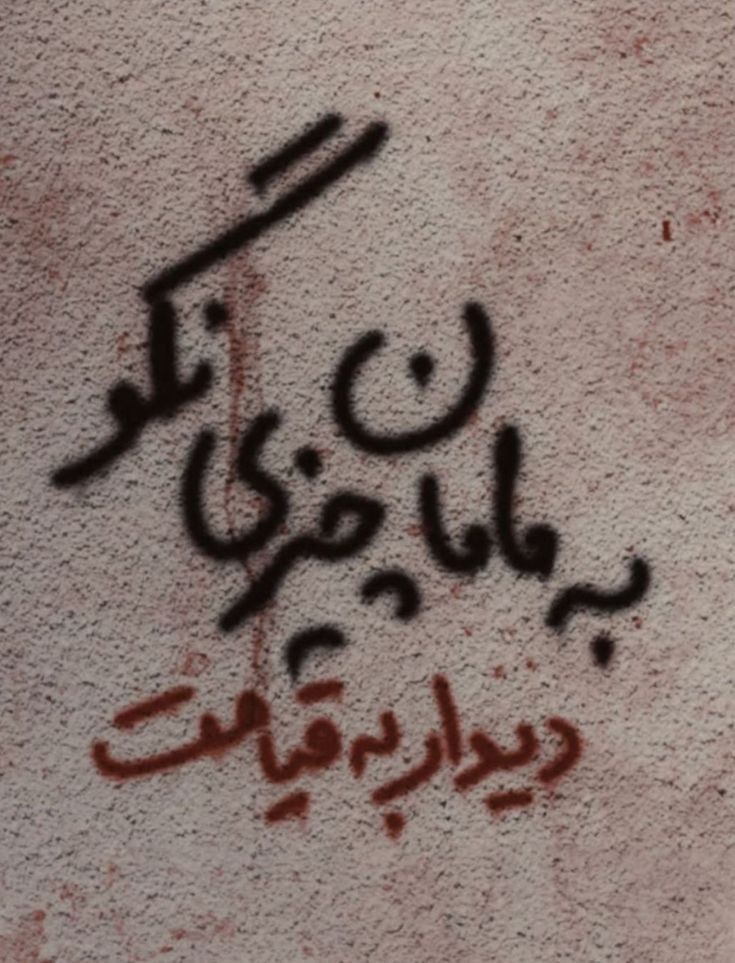 به مامان چیزی نگو
دیدار به قیامت